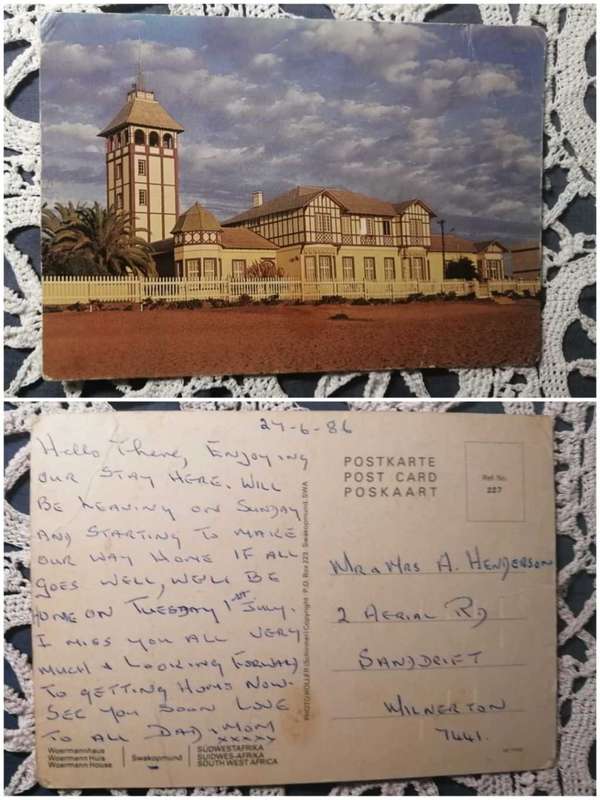 27-6-86
Hello There, Enjoying
our stay here. Will
be leaving on Sunday
and starting to make
our way home if all
goes well, we'll be
home on Tuesday 1st July.
I miss you all very
much & looking forward
to getting home now.
See you soon love
to all Dad & Mom
xxxxx
Woermannhaus
Woermann Huis
Woermann House
Swakopmund
SÜDWESTAFRIKA
SUIDWES-AFRIKA
SOUTH WEST AFRICA
PHOTO HOLLER (Sollinner) Copyright · P.O. Box 223, Swakopmund, SWA
POSTKARTE
POST CARD
POSKAART
Ref. No.
227
Mr & Mrs A. Henderson
2 Aerial Rd
Sanddrift
Milnerton
7441.